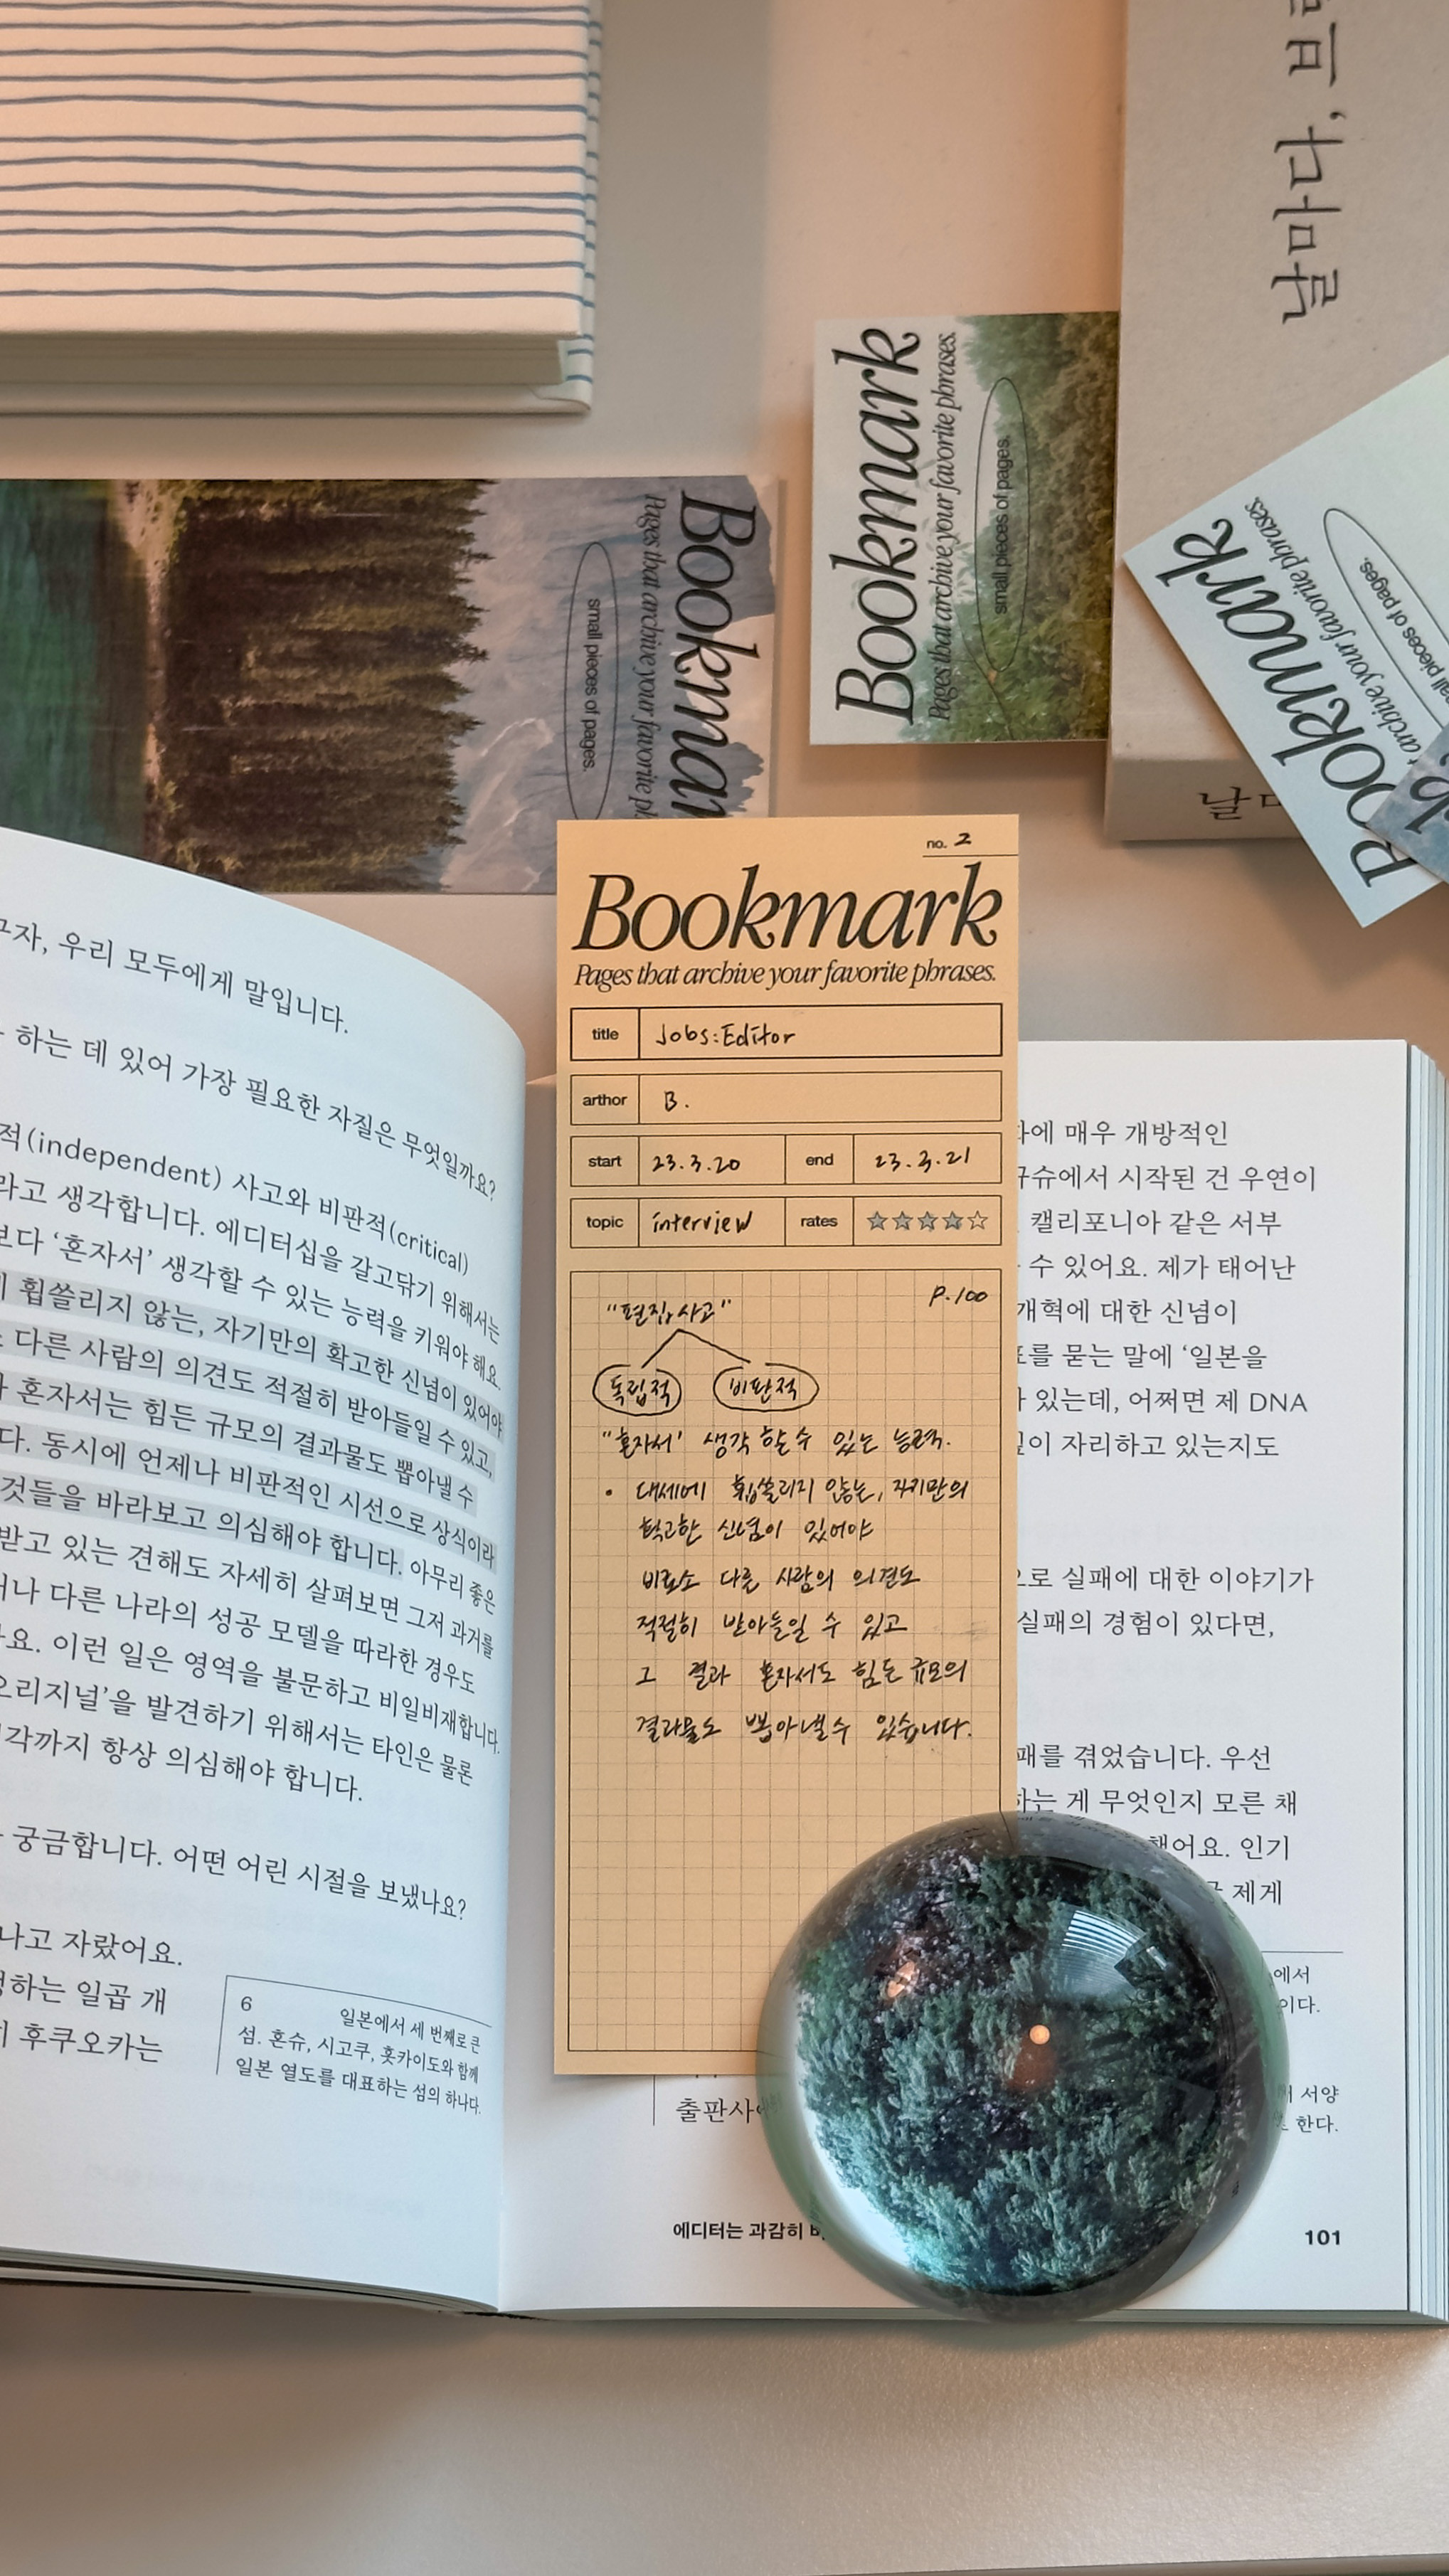 나를
Bookmark
Pages that archive your favorite phrases.
small pieces of pages.
Bookmar
Pages that archive your favorite
small pieces of pages.
Bookmark
archive your favorite phrases.
pieces of pages.
no. 2
Bookmark
Pages that archive your favorite phrases.
title Jobs:Editor
arthor B.
start 23.3.20 end 23.3.21
topic interview rates ★★★★☆
P.100
"편집 사고"
독립적 비판적
"혼자서' 생각 할 수 있는 능력.
• 대세에 휩쓸리지 않는, 자기만의
확고한 신념이 있어야
비로소 다른 사람의 의견도
적절히 받아들일 수 있고
그 결과 혼자서도 힘든 규모의
결과물도 뽑아낼 수 있습니다.
우리 모두에게 말입니다.
하는 데 있어 가장 필요한 자질은 무엇일까요?
적(independent) 사고와 비판적(critical)
라고 생각합니다. 에디터십을 갈고닦기 위해서는
보다 '혼자서' 생각할 수 있는 능력을 키워야 해요.
휩쓸리지 않는, 자기만의 확고한 신념이 있어야
다른 사람의 의견도 적절히 받아들일 수 있고,
혼자서는 힘든 규모의 결과물도 뽑아낼 수
다. 동시에 언제나 비판적인 시선으로 상식이라
것들을 바라보고 의심해야 합니다. 아무리 좋은
받고 있는 견해도 자세히 살펴보면 그저 과거를
나 다른 나라의 성공 모델을 따라한 경우도
요. 이런 일은 영역을 불문하고 비일비재합니다.
오리지널'을 발견하기 위해서는 타인은 물론
각까지 항상 의심해야 합니다.
궁금합니다. 어떤 어린 시절을 보냈나요?
나고 자랐어요.
하는 일곱 개
후쿠오카는
6 일본에서 세 번째로 큰
섬. 혼슈, 시고쿠, 홋카이도와 함께
일본 열도를 대표하는 섬의 하나다.
에 매우 개방적인
규슈에서 시작된 건 우연이
캘리포니아 같은 서부
수 있어요. 제가 태어난
개혁에 대한 신념이
를 묻는 말에 '일본을
있는데, 어쩌면 제 DNA
이 자리하고 있는지도
으로 실패에 대한 이야기가
실패의 경험이 있다면,
패를 겪었습니다. 우선
하는 게 무엇인지 모른 채
했어요. 인기
제게
에서
이다.
서양
한다.
출판사
에디터는 과감히
101